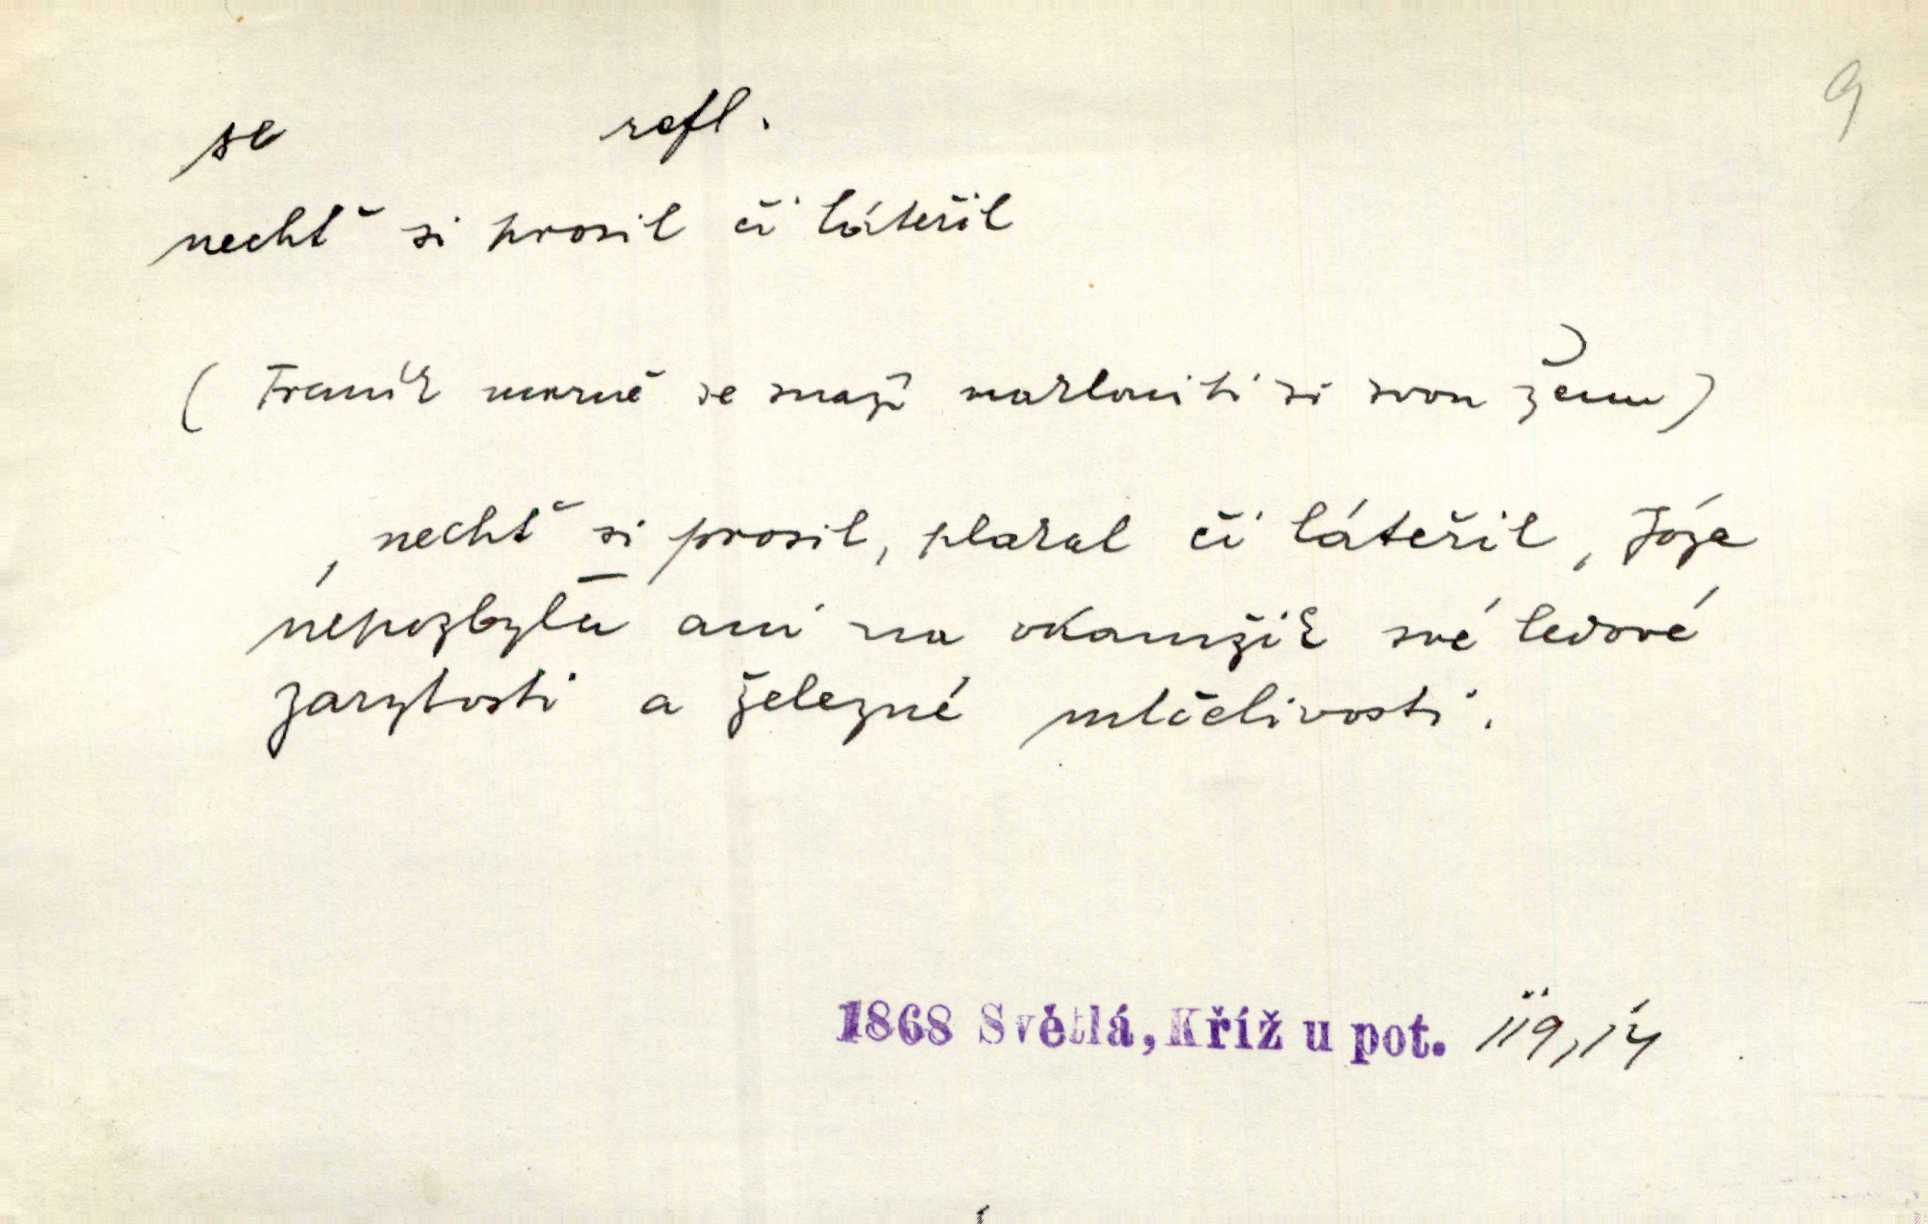 9
se refl.
nechť si prosil či láteřil
( Franík marně se snaží nakloniti si svou ženu )
, nechť si prosil, plakal či láteřil, Józa
nepozbyla ani na okamžik své ledové
zarytosti a železné mlčelivosti.
1868 Světlá, Kříž u pot. 119, 14